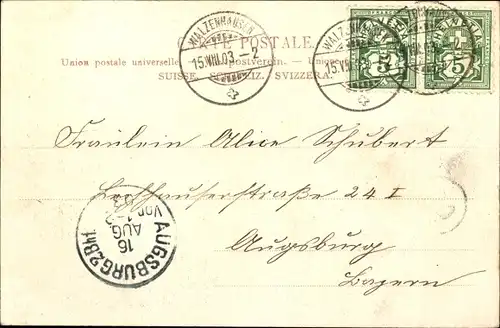 CARTE POSTALE.
Union postale universelle. Weltpostverein. Unione
SUISSE. SCHWEIZ. SVIZZERA.
WALZENHAUSEN
15.VIII.03 - 2
WALZENHAUSEN
15.VIII.03
HELVETIA
5 5
Fräulein Alice Schubert
Lechhauserstraße 24 I
Augsburg
Bayern
AUGSBURG 2.Bhf.
16
AUG.
Vor.
03